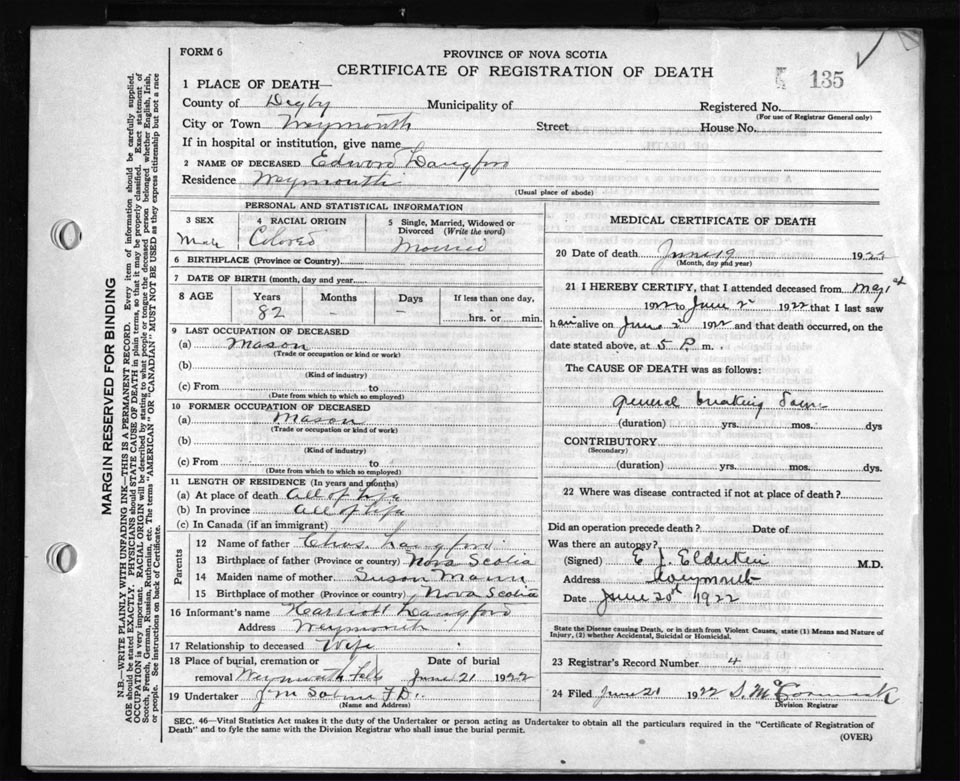 FORM 6
PROVINCE OF NOVA SCOTIA
CERTIFICATE OF REGISTRATION OF DEATH
135
1 PLACE OF DEATH—
County of Digby Municipality of Registered No.
(For use of Registrar General only)
City or Town Weymouth Street House No.
If in hospital or institution, give name
2 NAME OF DECEASED Edward Langford
Residence Weymouth
(Usual place of abode)
PERSONAL AND STATISTICAL INFORMATION
3 SEX 4 RACIAL ORIGIN 5 Single, Married, Widowed or Divorced (Write the word)
Male Colored Married
6 BIRTHPLACE (Province or Country)
7 DATE OF BIRTH (month, day and year)
8 AGE Years Months Days If less than one day,
82 – – hrs. or min.
9 LAST OCCUPATION OF DECEASED
(a) Mason
(Trade or occupation or kind or work)
(b)
(Kind of industry)
(c) From to
(Date from which to which so employed)
10 FORMER OCCUPATION OF DECEASED
(a) Mason
(Trade or occupation or kind of work)
(b)
(Kind of industry)
(c) From to
(Date from which to which so employed)
11 LENGTH OF RESIDENCE (In years and months)
(a) At place of death all of Life
(b) In province all of Life
(c) In Canada (if an immigrant)
Parents
12 Name of father Chas. Langford
13 Birthplace of father (Province or country) Nova Scotia
14 Maiden name of mother Susan Mann
15 Birthplace of mother (Province or country) Nova Scotia
16 Informant's name Harriott Langford
Address Weymouth
17 Relationship to deceased Wife
18 Place of burial, cremation or Date of burial
removal Weymouth Falls June 21 1922
19 Undertaker J.M. F.D.
(Name and Address)
MEDICAL CERTIFICATE OF DEATH
20 Date of death June 19 192
(Month, day and year)
21 I HEREBY CERTIFY, that I attended deceased from May 1st
1922 to June 2 1922 that I last saw
h alive on June 2 1922 and that death occurred, on the
date stated above, at 5 P. m.
The CAUSE OF DEATH was as follows:
general breaking down
(duration) yrs. mos. dys
CONTRIBUTORY
(Secondary)
(duration) yrs. mos. dys.
22 Where was disease contracted if not at place of death?
Did an operation precede death? Date of
Was there an autopsy?
(Signed) E. J. Elderkin M.D.
Address Weymouth
Date June 20th 1922
State the Disease causing Death, or in death from Violent Causes, state (1) Means and Nature of
Injury, (2) whether Accidental, Suicidal or Homicidal.
23 Registrar's Record Number 4
24 Filed June 21 1922 S. McCormack
Division Registrar
SEC. 46—Vital Statistics Act makes it the duty of the Undertaker or person acting as Undertaker to obtain all the particulars required in the "Certificate of Registration of
Death" and to fyle the same with the Division Registrar who shall issue the burial permit.
(OVER)
MARGIN RESERVED FOR BINDING
N.B.—WRITE PLAINLY WITH UNFADING INK—THIS IS A PERMANENT RECORD. Every item of information should be carefully supplied.
AGE should be stated EXACTLY. PHYSICIANS should STATE CAUSE OF DEATH in plain terms, so that it may be properly classified. Exact statement of
OCCUPATION is very important. RACIAL ORIGIN will be described by stating to what people or tongue the deceased person belonged whether English, Irish,
Scotch, French, German, Russian, Ruthenian, etc. The terms "AMERICAN" OR "CANADIAN" MUST NOT BE USED as they express citizenship but not a race
or people. See instructions on back of Certificate.